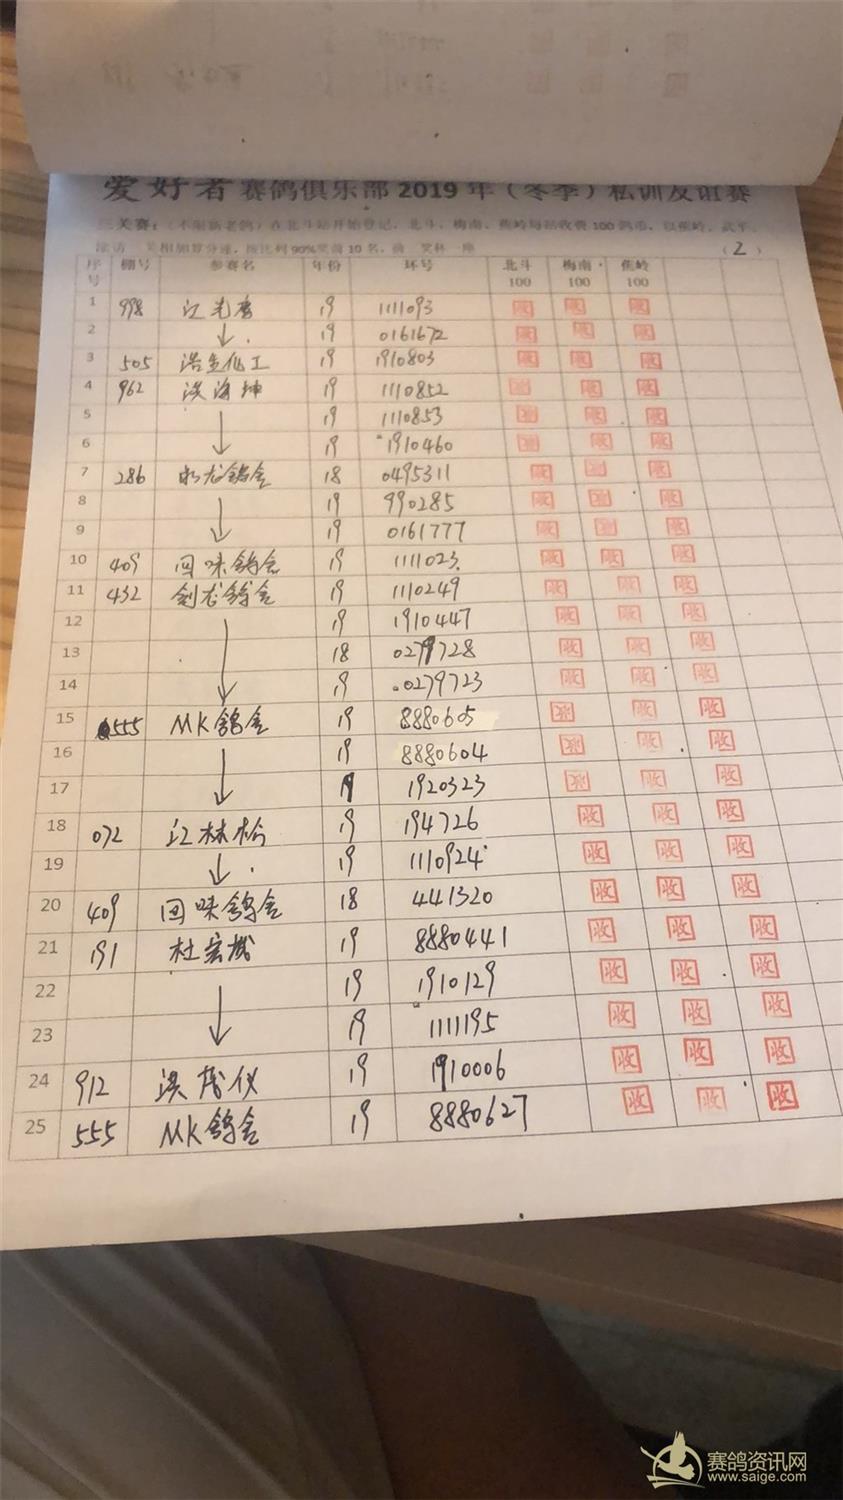 爱好者赛鸽俱乐部2019年（冬季）私训友谊赛
三关赛：（不限新老鸽）在北斗站开始登记，北斗、梅南、蕉岭每站收费100鸽币，以蕉岭、武平、
关相加算分速，按比例90%奖前10名，前 奖杯一座
（2）
序号 棚号 参赛名 年份 环号 北斗100 梅南100 蕉岭100
1 998 江 19 1111093 收 收 收
2 ↓ 19 0161672 收 收 收
3 505 浩 化工 19 1910803 收 收 收
4 962 洪海坤 19 1110852 收 收 收
5 19 1110853 收 收 收
6 ↓ 19 1910460 收 收 收
7 286 龙鸽舍 18 0495311 收 收 收
8 19 990285 收 收 收
9 ↓ 19 0161777 收 收 收
10 409 回味鸽舍 19 1111023 收 收 收
11 432 剑龙鸽舍 19 1110249 收 收 收
12 19 1910447 收 收 收
13 18 0279728 收 收 收
14 ↓ 19 0279723 收 收 收
15 555 MK鸽舍 19 8880605 收 收 收
16 19 8880604 收 收 收
17 ↓ 19 1920323 收 收 收
18 072 江林松 19 194726 收 收 收
19 ↓ 19 1110924 收 收 收
20 409 回味鸽舍 18 441320 收 收 收
21 191 杜宏城 19 8880441 收 收 收
22 19 1910129 收 收 收
23 ↓ 19 1111195 收 收 收
24 912 洪茂仪 19 1910006 收 收 收
25 555 MK鸽舍 19 8880627 收 收 收
赛鸽资讯网
www.saige.com